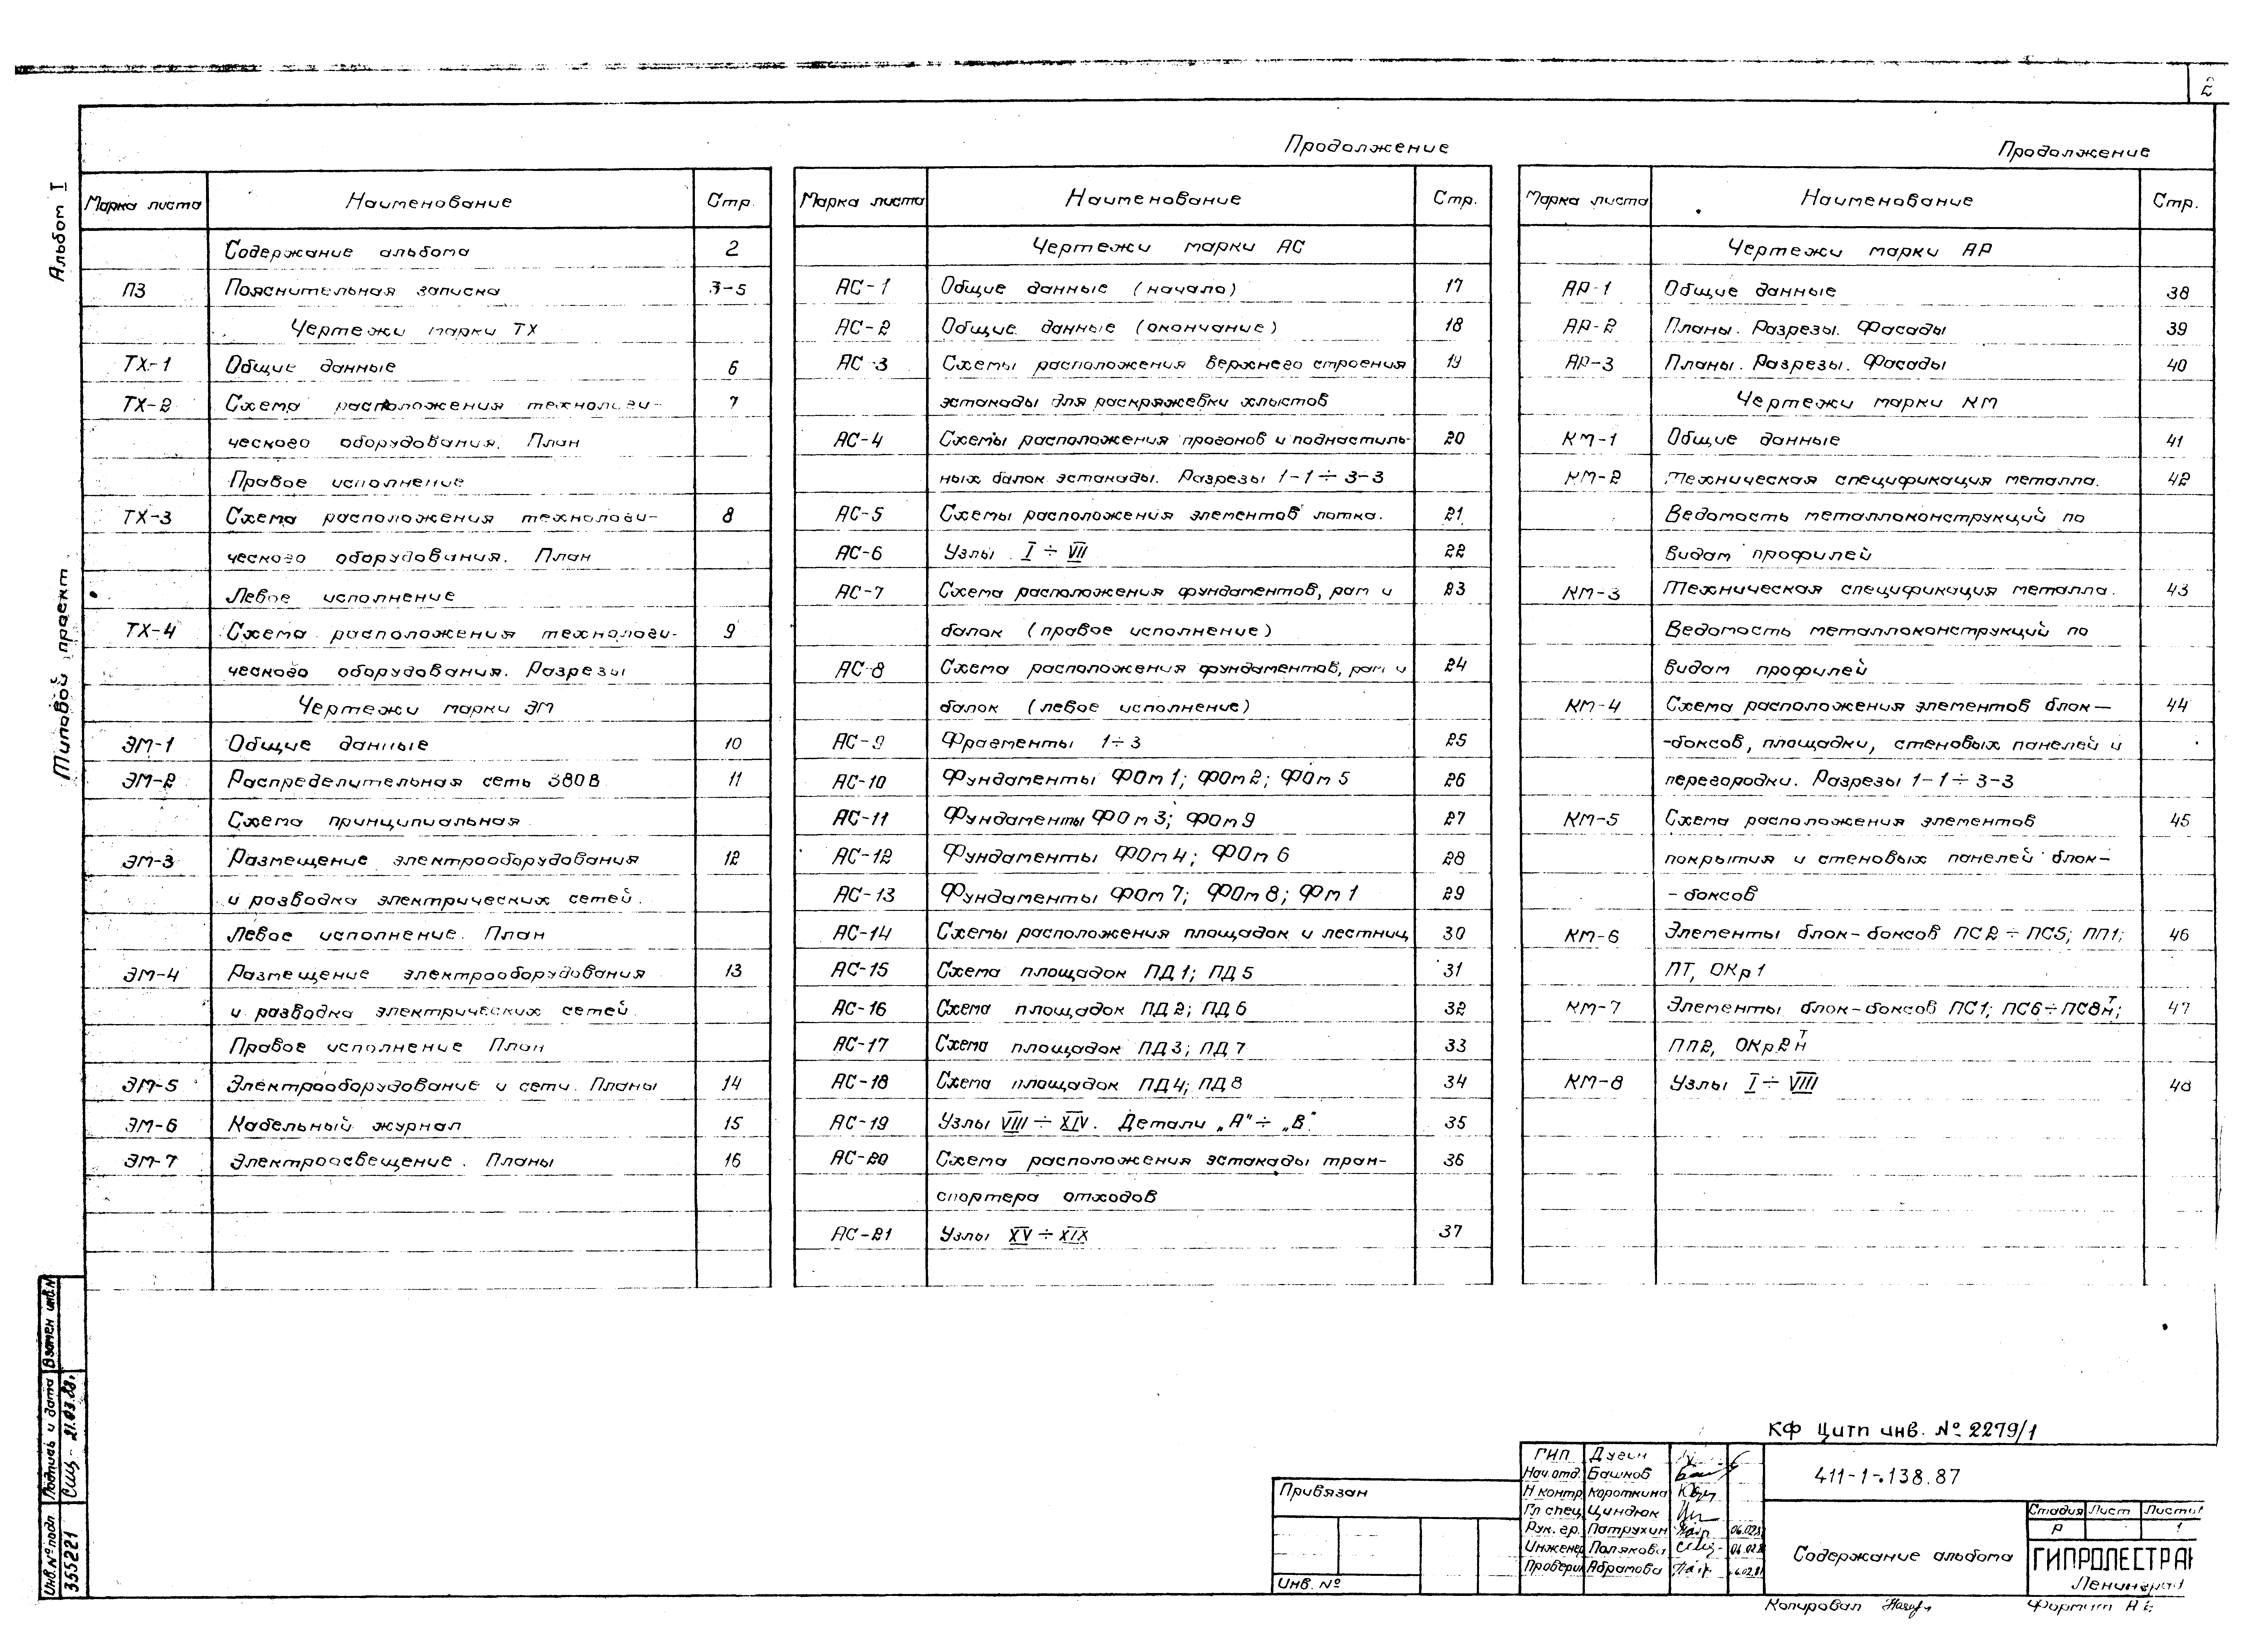 2
Альбом I
Типовой проект
Марка листа Наименование Стр.
Содержание альбома 2
ПЗ Пояснительная записка 3-5
Чертежи марки ТХ
ТХ-1 Общие данные 6
ТХ-2 Схема расположения технологи- 7
ческого оборудования. План
Правое исполнение
ТХ-3 Схема расположения технологи- 8
ческого оборудования. План
Левое исполнение
ТХ-4 Схема расположения технологи- 9
ческого оборудования. Разрезы
Чертежи марки ЭМ
ЭМ-1 Общие данные 10
ЭМ-2 Распределительная сеть 380В 11
Схема принципиальная
ЭМ-3 Размещение электрооборудования 12
и разводка электрических сетей.
Левое исполнение. План
ЭМ-4 Размещение электрооборудования 13
и разводка электрических сетей
Правое исполнение План
ЭМ-5 Электрооборудование и сети. Планы 14
ЭМ-6 Кабельный журнал 15
ЭМ-7 Электроосвещение. Планы 16
Продолжение
Марка листа Наименование Стр.
Чертежи марки АС
АС-1 Общие данные (начало) 17
АС-2 Общие данные (окончание) 18
АС-3 Схемы расположения верхнего строения 19
эстакады для раскряжевки хлыстов
АС-4 Схемы расположения прогонов и поднастиль- 20
ных балок эстакады. Разрезы 1-1 ÷ 3-3
АС-5 Схемы расположения элементов лотка. 21
АС-6 Узлы I ÷ VII 22
АС-7 Схема расположения фундаментов, рам и 23
балок (правое исполнение)
АС-8 Схема расположения фундаментов, рам и 24
балок (левое исполнение)
АС-9 Фрагменты 1÷3 25
АС-10 Фундаменты ФОм1; ФОм2; ФОм5 26
АС-11 Фундаменты ФОм3; ФОм9 27
АС-12 Фундаменты ФОм4; ФОм6 28
АС-13 Фундаменты ФОм7; ФОм8; Фм1 29
АС-14 Схемы расположения площадок и лестниц 30
АС-15 Схема площадок ПД1; ПД5 31
АС-16 Схема площадок ПД2; ПД6 32
АС-17 Схема площадок ПД3; ПД7 33
АС-18 Схема площадок ПД4; ПД8 34
АС-19 Узлы VIII ÷ XIV. Детали „А" ÷ „В" 35
АС-20 Схема расположения эстакады тран- 36
спортера отходов
АС-21 Узлы XV ÷ XIX 37
Продолжение
Марка листа Наименование Стр.
Чертежи марки АР
АР-1 Общие данные 38
АР-2 Планы. Разрезы. Фасады 39
АР-3 Планы. Разрезы. Фасады 40
Чертежи марки КМ
КМ-1 Общие данные 41
КМ-2 Техническая спецификация металла. 42
Ведомость металлоконструкций по
видам профилей
КМ-3 Техническая спецификация металла. 43
Ведомость металлоконструкций по
видам профилей
КМ-4 Схема расположения элементов блок- 44
-боксов, площадки, стеновых панелей и
перегородки. Разрезы 1-1 ÷ 3-3
КМ-5 Схема расположения элементов 45
покрытия и стеновых панелей блок-
-боксов
КМ-6 Элементы блок-боксов ПС2 ÷ ПС5; ПП1; 46
ПТ, ОКр1
КМ-7 Элементы блок-боксов ПС1; ПС6÷ПС8Т/Н; 47
ПП2, ОКр2Т/Н
КМ-8 Узлы I ÷ VIII 48
Взамен инв.№
Подпись и дата 21.03.88г.
Инв.№ подл. 355221
КФ ЦИТП инв. № 2279/1
Привязан
Инв. №
ГИП Дугин
Нач.отд. Башков
Н контр Короткина
Гл спец Циндюк
Рук. гр. Патрухин 06.02.8
Инженер Полякова 04.02.8
Проверил Абрамова
411-1-138.87
Содержание альбома
Стадия Лист
Р 1
ГИПРОЛЕСТРАН
Ленинград
Копировал
Формат А2